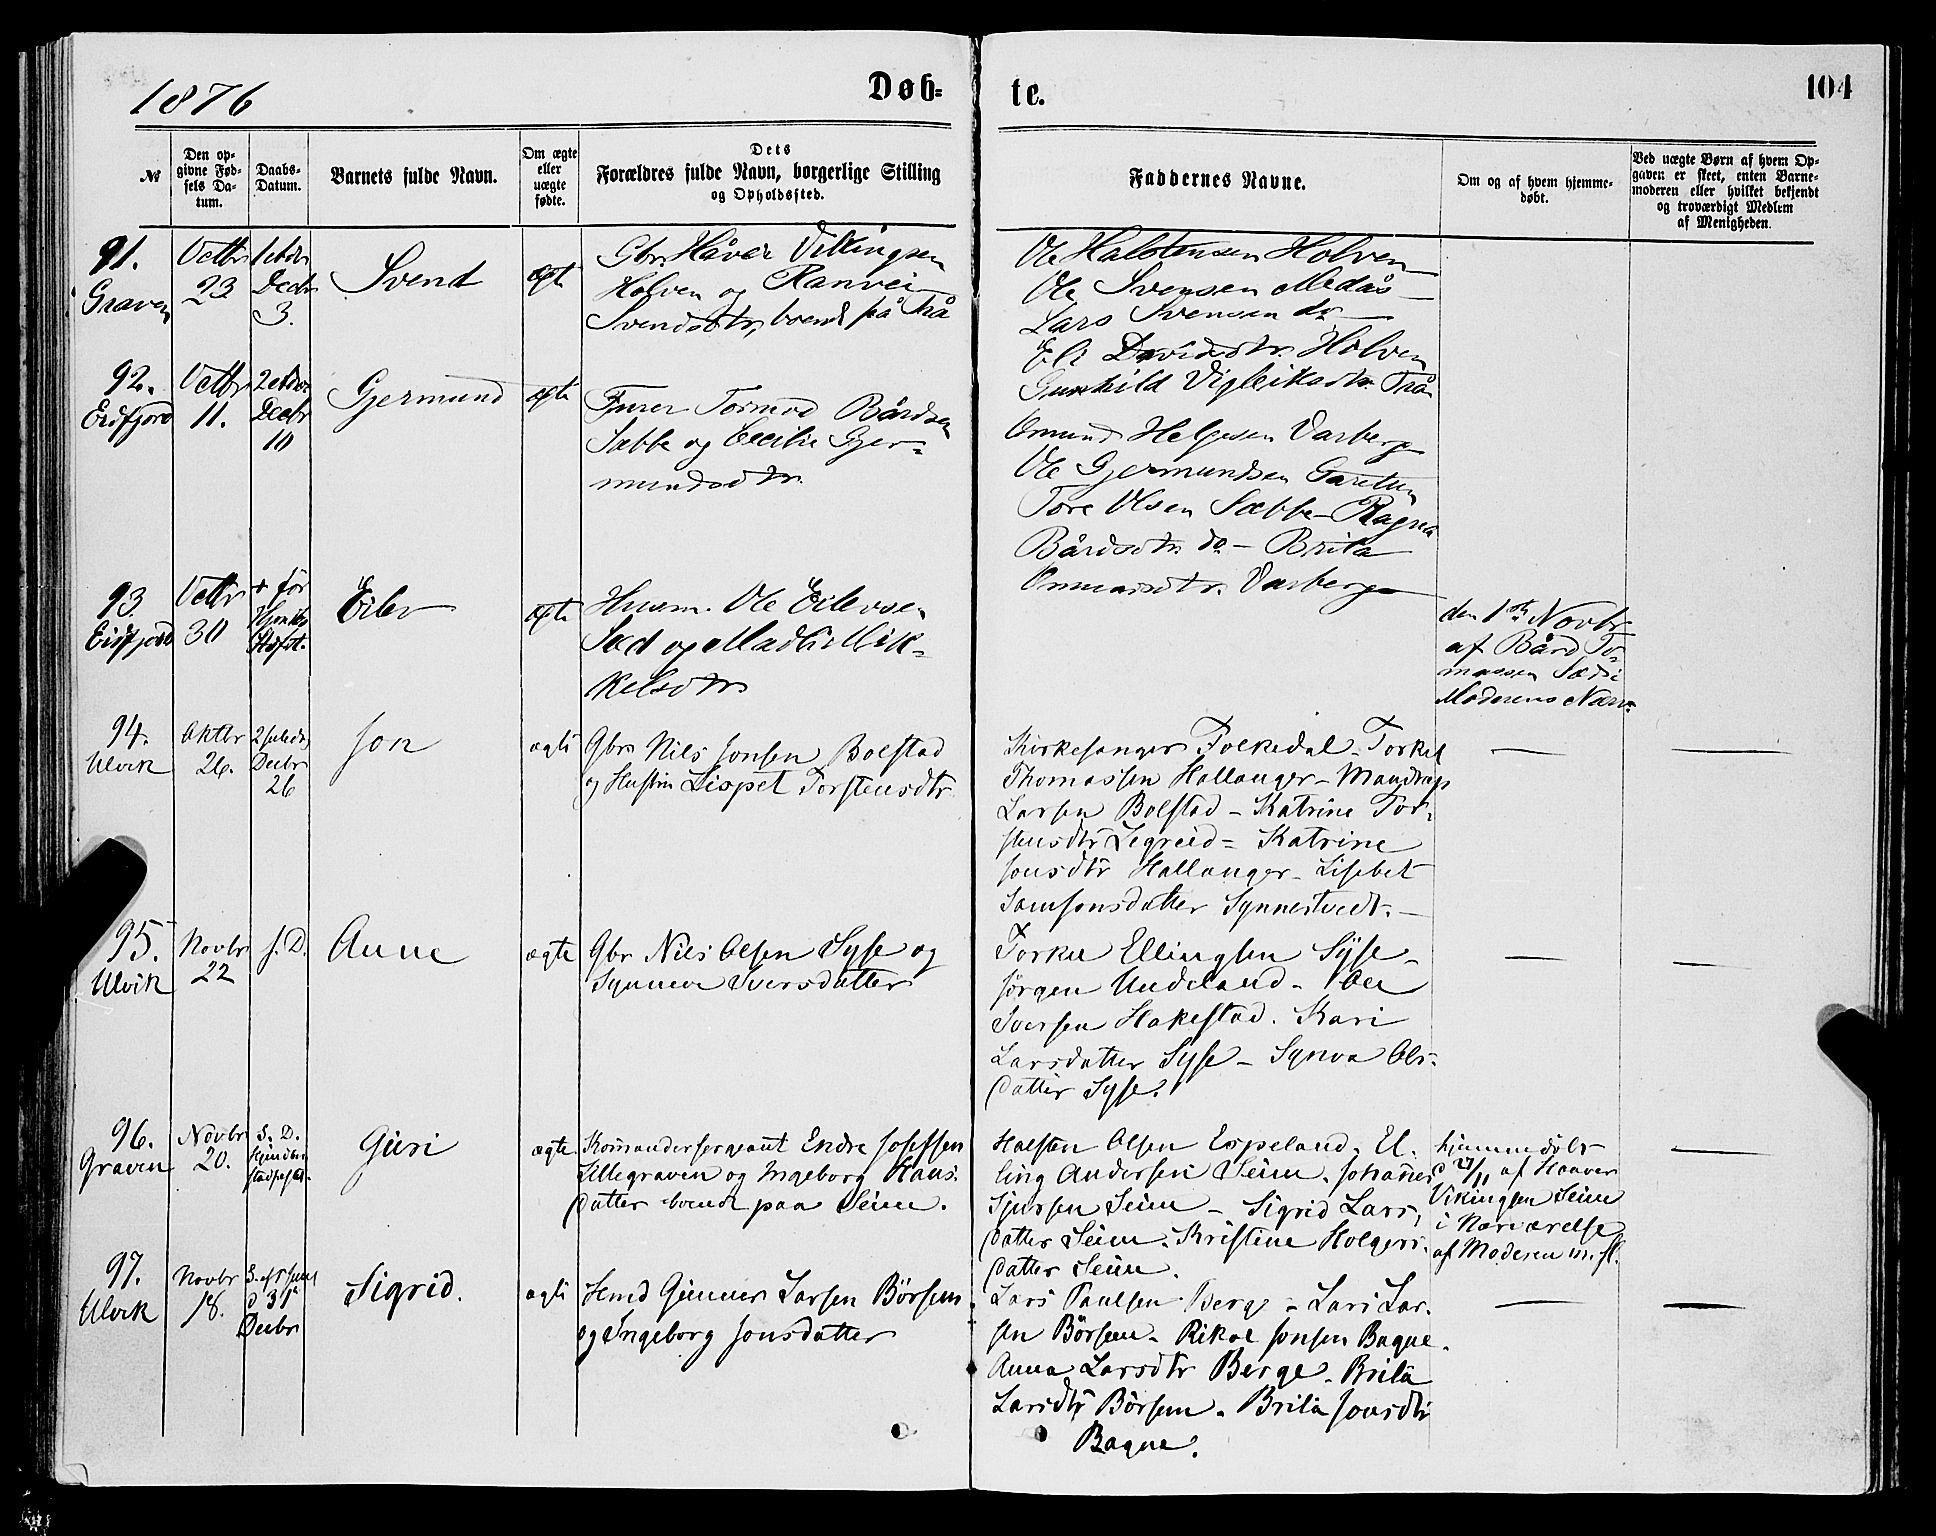 1876
Døb-
te.
104
№
Den op-
givne Fød-
sels Da-
tum.
Daabs-
Datum.
Barnets fulde Navn.
Om ægte
eller
uægte
fødte.
Dets
Forældres fulde Navn, borgerlige Stilling
og Opholdssted.
Faddernes Navne.
Om og af hvem hjemme-
døbt.
Ved uægte Børn af hvem Op-
gaven er skeet, enten Barne-
moderen eller hvilket bekjendt
og troværdigt Medlem
af Menigheden.
91.
Graven
Octbr
23
Decbr
3.
Svend
ægte
Gbr. Håver Vikingsen
Holven og Ranvei
Svendsdtr, boende på Trå
Ole Halstensen Holven
Ole Svensen Medås
Lars Svensen do
Eli Davidsdtr. Holven
Gunhild Vigleiksdtr. Trå
92.
Eidfjord
Octbr
11.
Decbr
10
Gjermund
ægte
Furer Tormod Bårdsen
Sæbbe og Cecilie Gjer-
mundsdtr.
Omund Helgesen Varberg
Ole Gjermundsen Garetun
Tore Olsen Sæbbe - Ragna
Bårdsdtr. do - Brita
Omundsdtr. Varberg
93
Eidfjord
Octbr
30
+ før
Eilev
ægte
Husm. Ole Eilevse.
Sæd og Madli Mik-
kelsdtr
den 1ste Novbr
af Bård To-
massen Sæd i
Moderens Nærv.
94.
Ulvik
Oktbr
26.
2 juledag
Decbr
26
Jon
ægte
Gbr. Nils Jonsen Bolstad
og Hustru Lispet Torstensdtr
Kirkesanger Folkedal - Torkel
Thomassen Hallanger - Mandrup
Larsen Bolstad - Katrine Tor-
stensdtr Legreid - Katrine
Jonsdtr Hallanger - Lisebet
Samsonsdatter Synnestvedt. -
95.
Ulvik
Novbr
22
s. D.
Anne
ægte
Gbr Nils Olsen Syse og
Synneva Iversdatter
Torkel Ellingsen Syse -
Jørgen Undeland - Ole
Iversen Hakestad. Kari
Larsdatter Syse - Synva Ols-
datter Syse.
96.
Graven
Novbr
20.
s. D.
Guri
ægte
Komandersergeant Endre Josefsen
Lillegraven og Ingeborg Hans-
datter boende paa Seim.
Halsten Olsen Espeland. El-
ling Andersen Seim. Johannes
Sjursen Seim - Sigrid Lars-
datter Seim. Kristine Holgers-
datter Seim.
hjemmedøbt
d 27/11 af Haaver
Vikingsen Seim
i Nærværelse
af Moderen m. fl.
97.
Ulvik
Novbr
18.
S. eft Jul
d 31
Decbr
Sigrid.
ægte
Hmd Gunnar Larsen Børsem
og Ingeborg Jonsdatter
Lars Paulsen Berge - Lars Lar-
sen Børsem. Rikol Jonsen Bagne.
Anna Larsdtr Berge. Brita
Larsdtr Børsem. Brita Jonsdtr
Bagne.